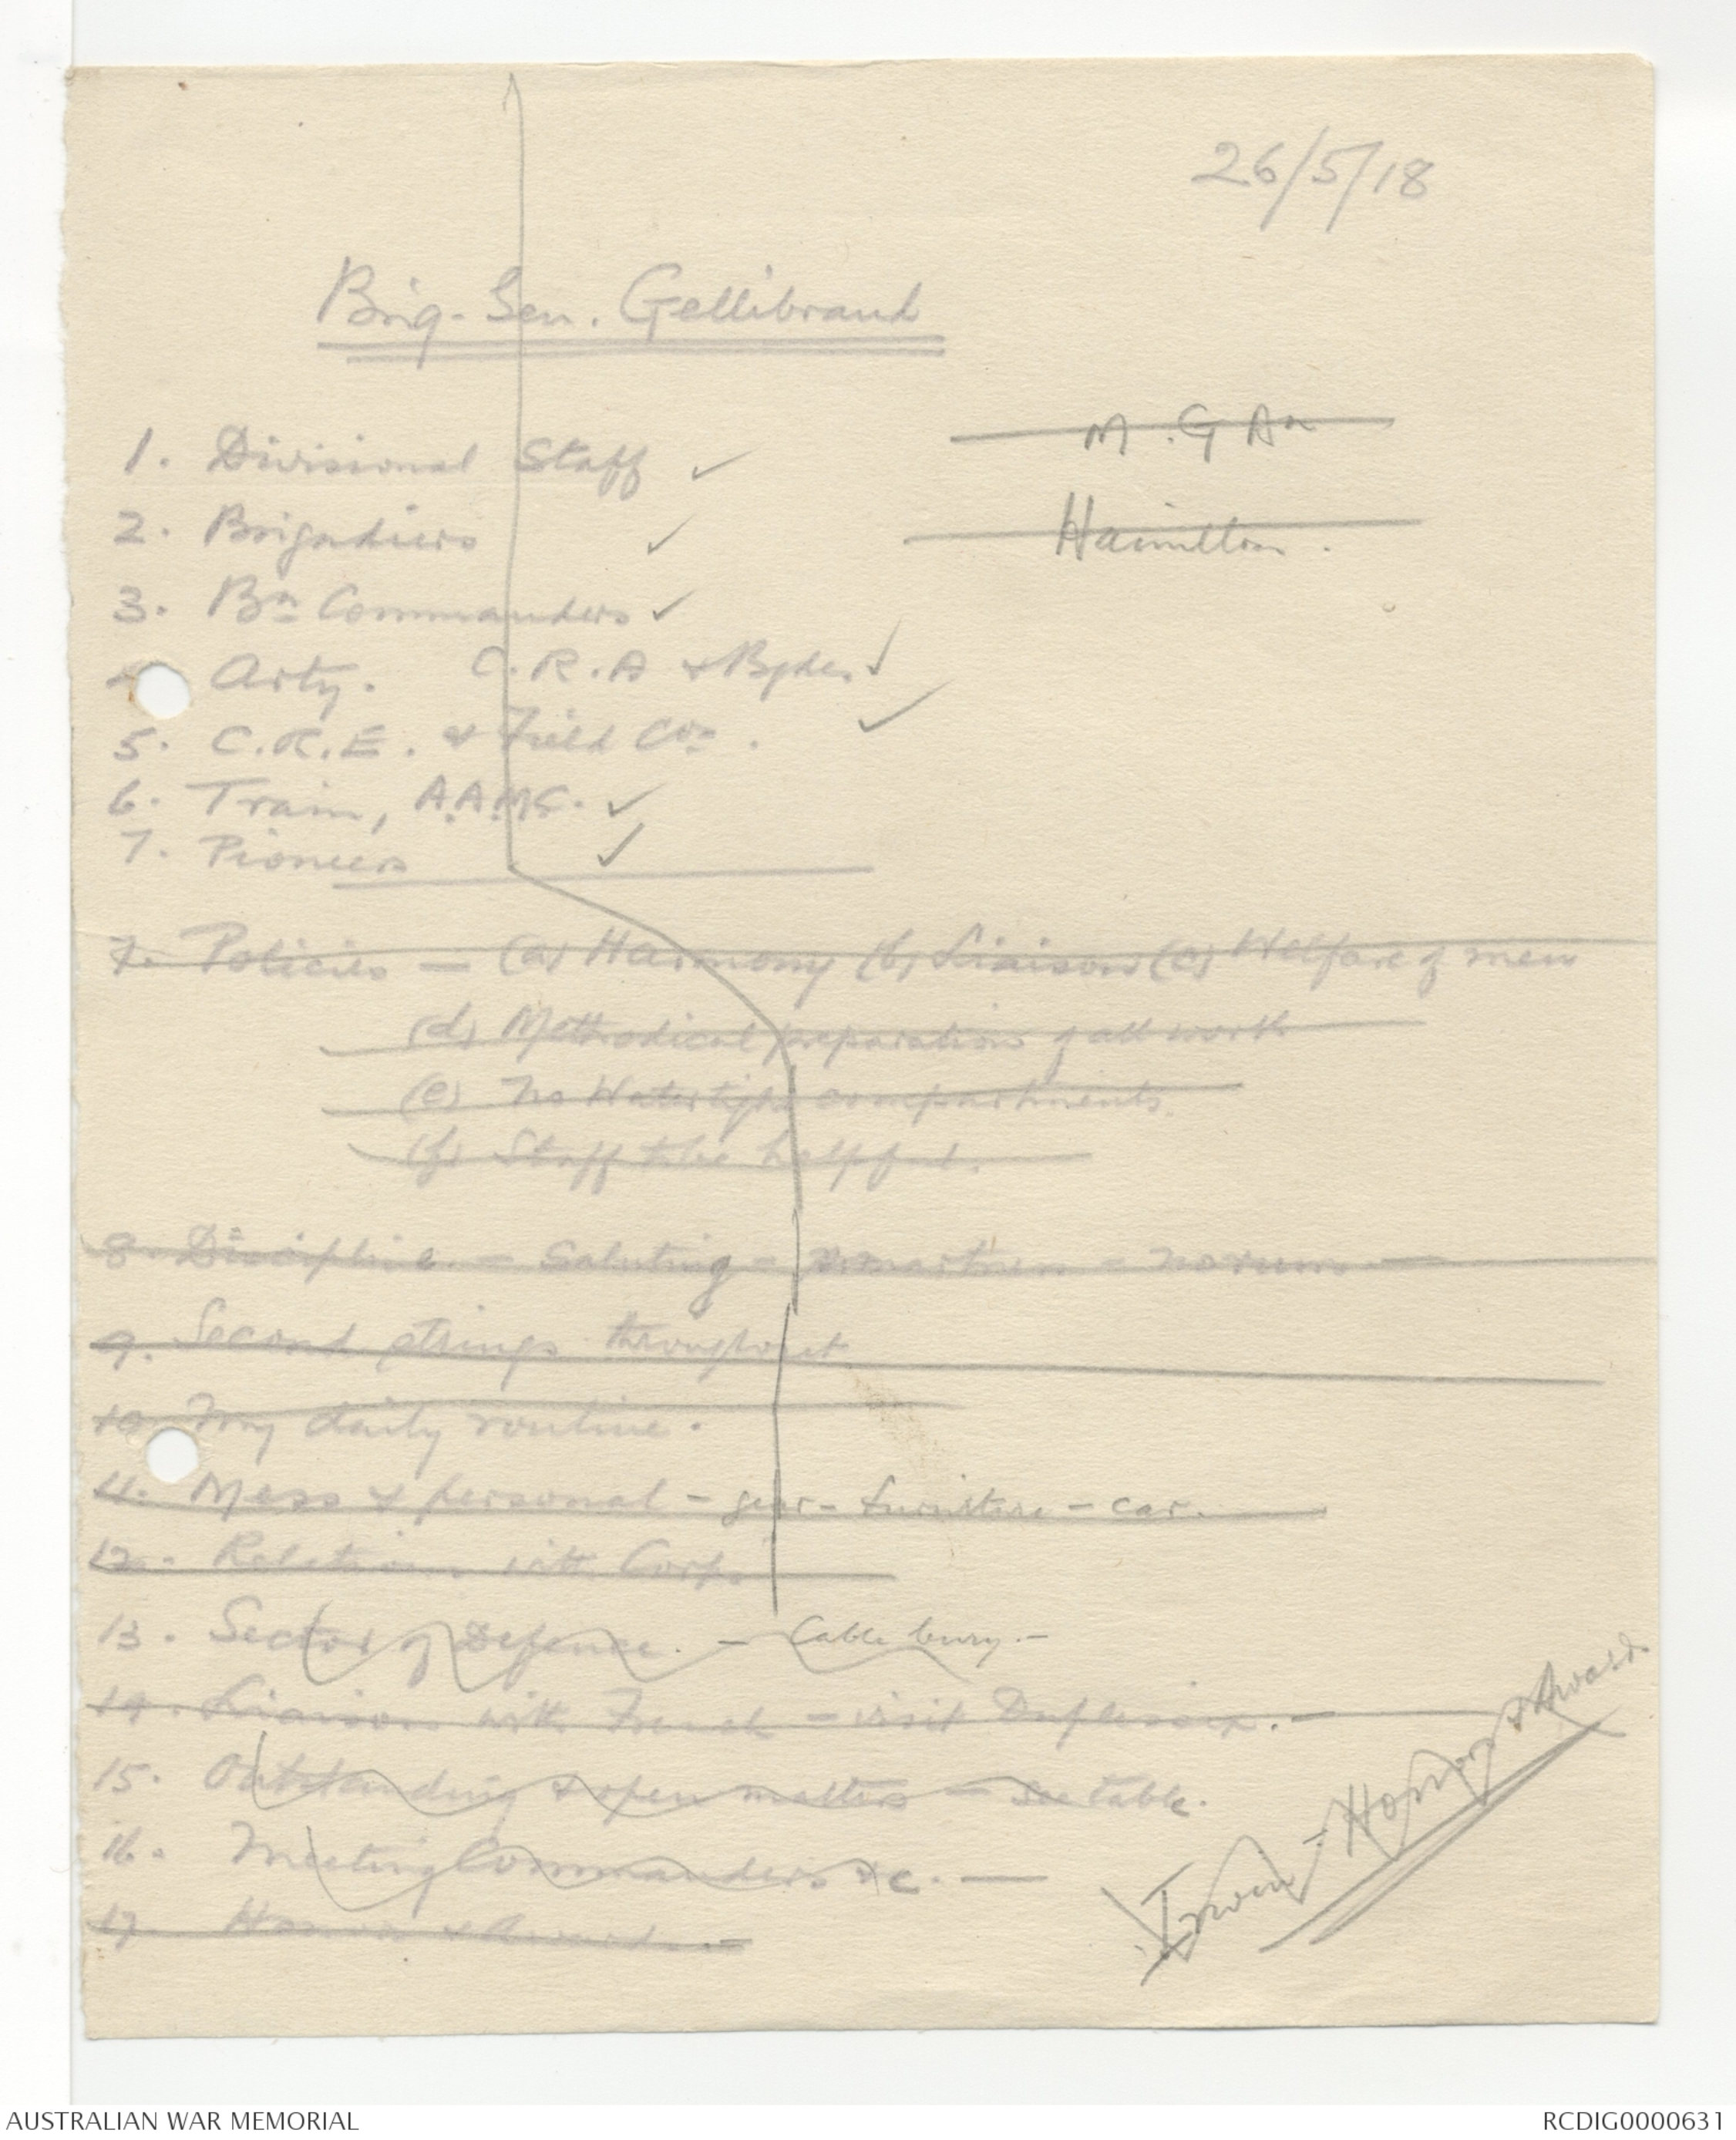 26/5/18
Brig-Gen. Gellibrand
M.G Bn
Hamilton.
1. Divisional Staff ✓
2. Brigadiers ✓
3. Bn Commanders ✓
4 Arty. C.R.A & Bgdes ✓
5. C.R.E. & Field Cos. ✓
6. Train, A.A.M.C. ✓
7. Pioneers ✓
7. Policies — (a) Harmony (b) Liaison (c) Welfare of men
(d) Methodical preparation of all work
(e) No Watertight compartments.
(f) Staff to be helpful.
8. Discipline - Saluting - smartness -
9. Second strings throughout
10. My daily routine.
11. Mess & personal - gear - furniture - car.
12. Relations with Corps
13. Sector of Defence. - Cable bury. -
14. Liaison with French - visit -
15. Outstanding & open matters - see table.
16. Meeting Commanders &c. —
17. Honors & Awards. -
- Honors & Awards
AUSTRALIAN WAR MEMORIAL
RCDIG0000631